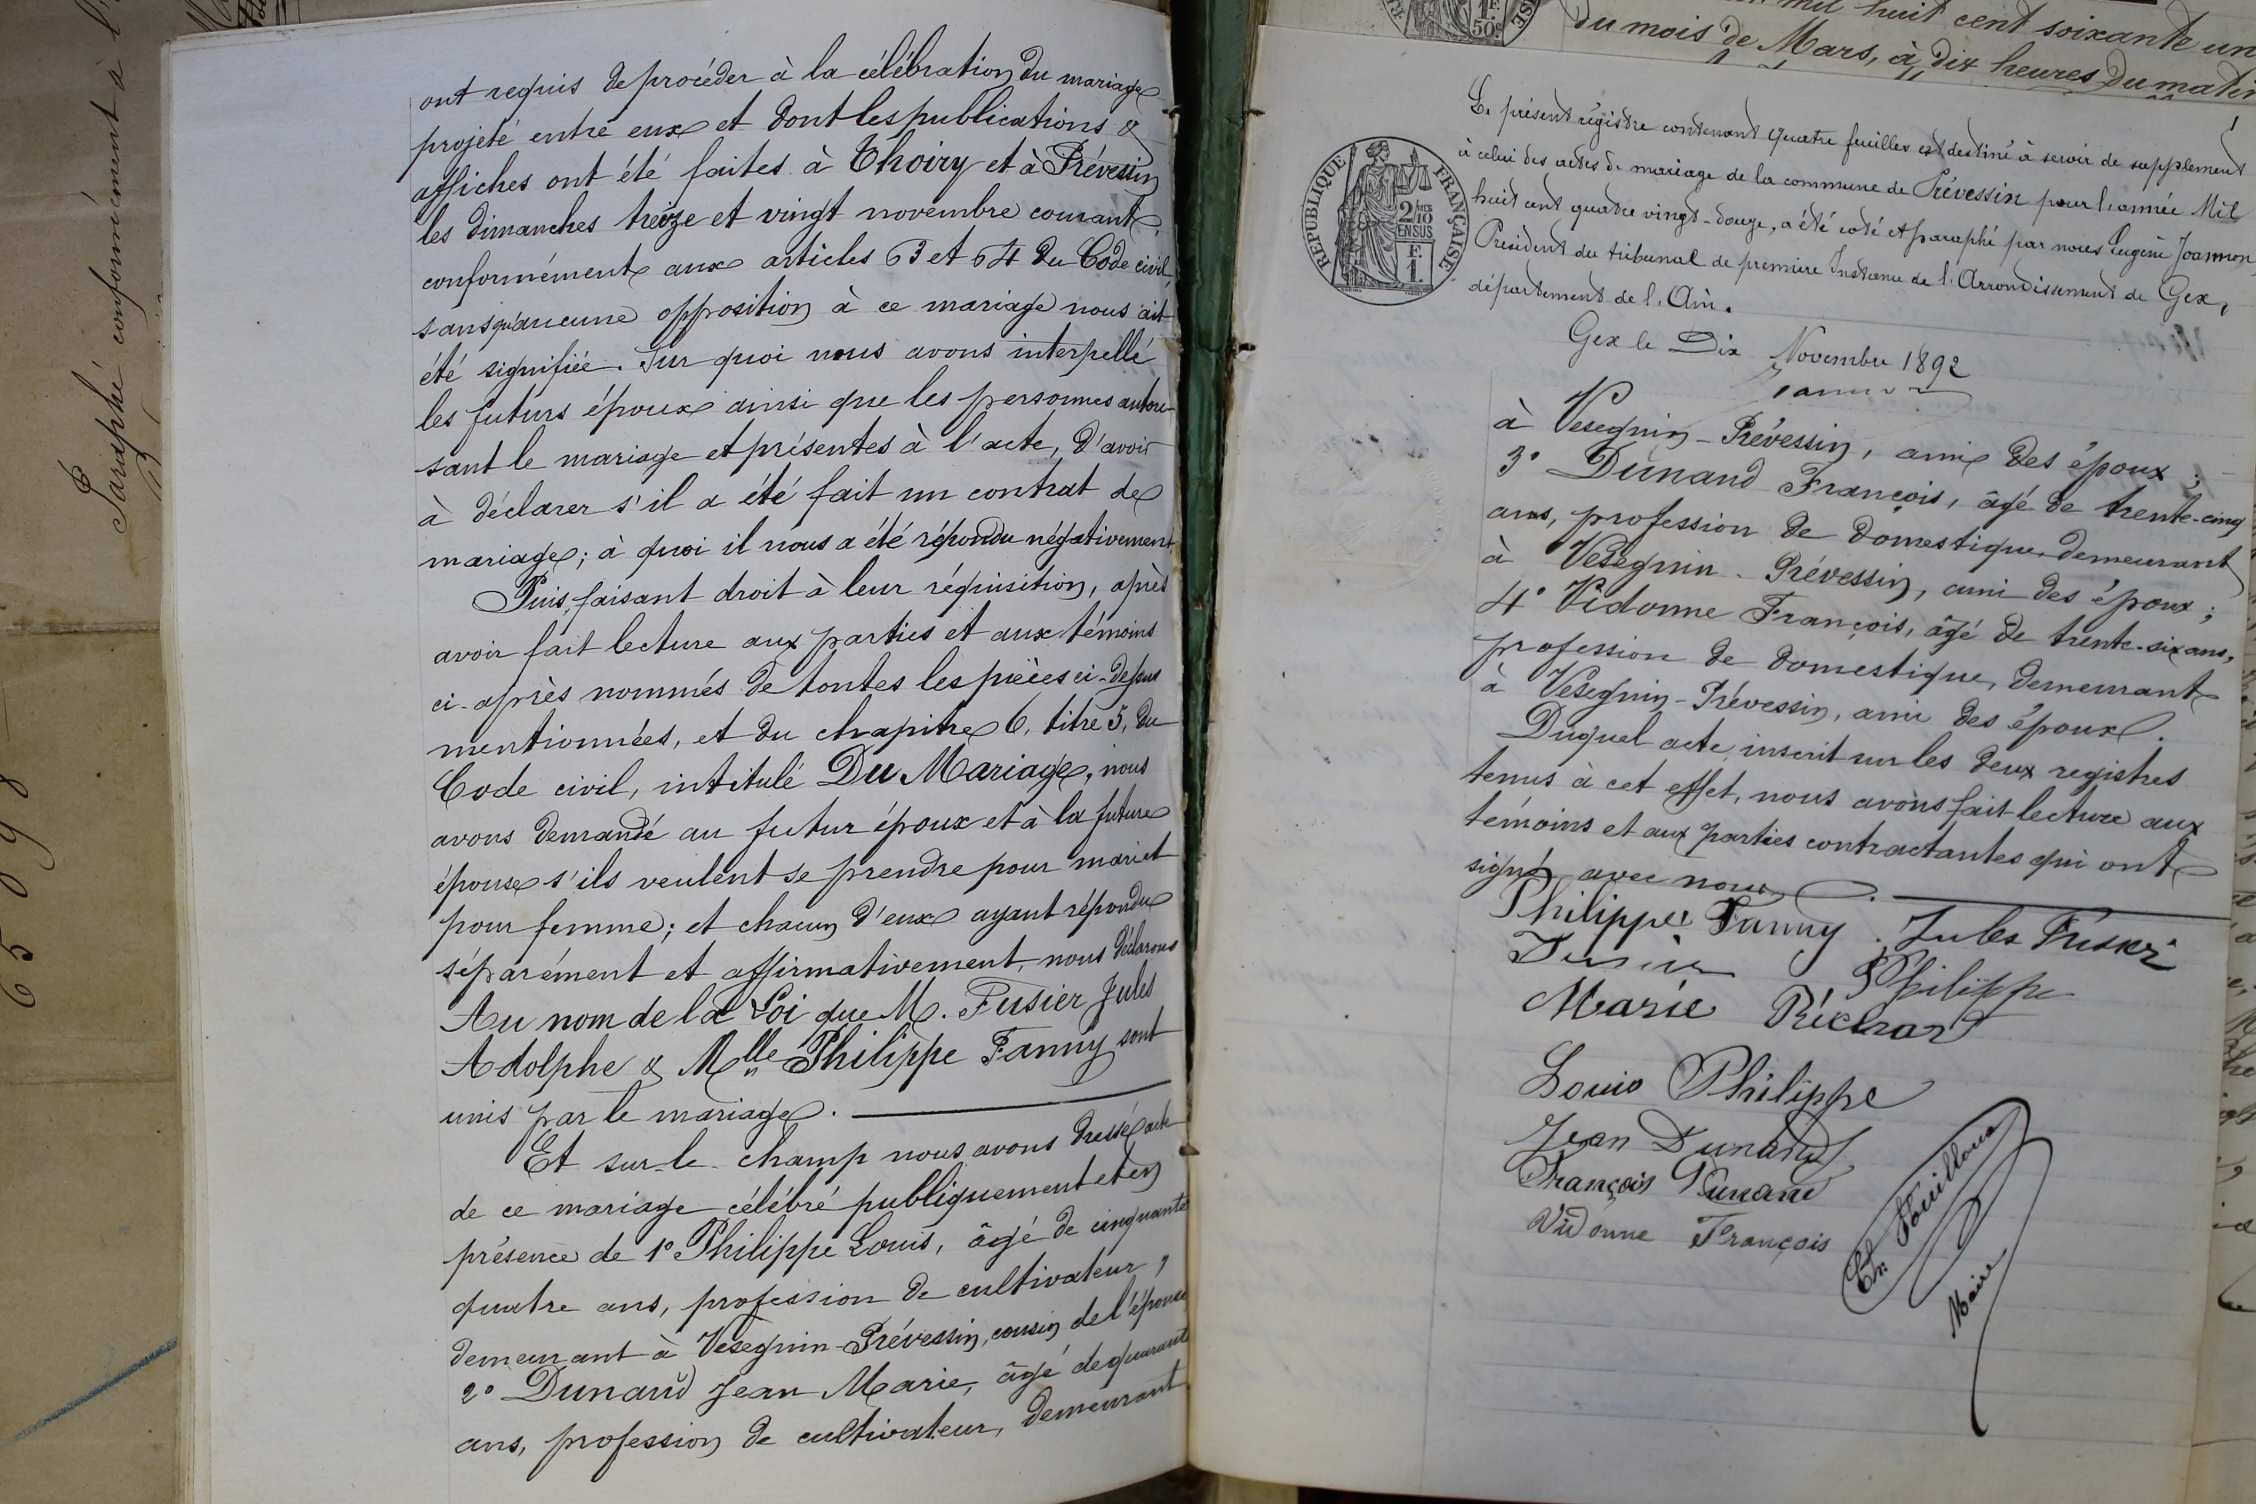 Paraphé conformément à l'
65098
ont requis de procéder à la célébration du mariage
projeté entre eux et dont les publications &
affiches ont été faites à Thoiry et à Prévessin
les dimanches treize et vingt novembre courant,
conformément aux articles 63 et 64 du Code civil,
sans qu'aucune opposition à ce mariage nous ait
été signifiée. Sur quoi nous avons interpellé
les futurs époux ainsi que les personnes autori-
sant le mariage et présentes à l'acte, d'avoir
à déclarer s'il a été fait un contrat de
mariage; à quoi il nous a été répondu négativement
Puis, faisant droit à leur réquisition, après
avoir fait lecture aux parties et aux témoins
ci-après nommés de toutes les pièces ci-dessus
mentionnées, et du chapitre 6, titre 5, du
Code civil, intitulé Du Mariage, nous
avons demandé au futur époux et à la future
épouse s'ils veulent se prendre pour mari et
pour femme; et chacun d'eux ayant répondu
séparément et affirmativement, nous déclarons
Au nom de la Loi que M. Fusier Jules
Adolphe & Mlle Philippe Fanny sont
unis par le mariage.
Et sur-le-champ nous avons dressé acte
de ce mariage célébré publiquement et en
présence de 1° Philippe Louis, âgé de cinquante
quatre ans, profession de cultivateur,
demeurant à Vesegnin-Prévessin, cousin de l'épouse
2° Dunand Jean Marie, âgé de quarante
ans, profession de cultivateur, demeurant
mil huit cent soixante un
du mois de Mars, à dix heures du matin
Le présent régistre contenant quatre feuilles est destiné à servir de supplement
à celui des actes de mariage de la commune de Prévessin pour l'année Mil
huit cent quatre vingt-douze, a été coté et paraphé par nous Eugène Joannon
Président du tribunal de première Instance de l'Arrondissement de Gex,
département de l'Ain.
Gex le Dix Novembre 1892
RÉPUBLIQUE FRANÇAISE
2/10 EN SUS
F. 1.
à Vesegnin-Prévessin, ami des époux;
3° Dunand François, âgé de trente-cinq
ans, profession de domestique, demeurant
à Vesegnin-Prévessin, ami des époux;
4° Vidonne François, âgé de trente-six ans,
profession de domestique, demeurant
à Vesegnin-Prévessin, ami des époux.
Duquel acte, inscrit sur les deux registres
tenus à cet effet, nous avons fait lecture aux
témoins et aux parties contractantes qui ont
signé avec nous.
Philippe Fanny Jules Fusier
Philippe
Marie
Louis Philippe
Jean Dunand
François Dunand
Vidonne François
Maire